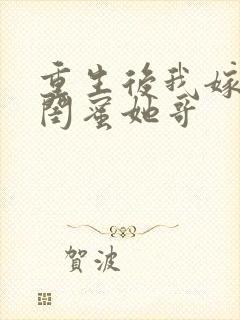 重生後我嫁
閨蜜她哥
賀波